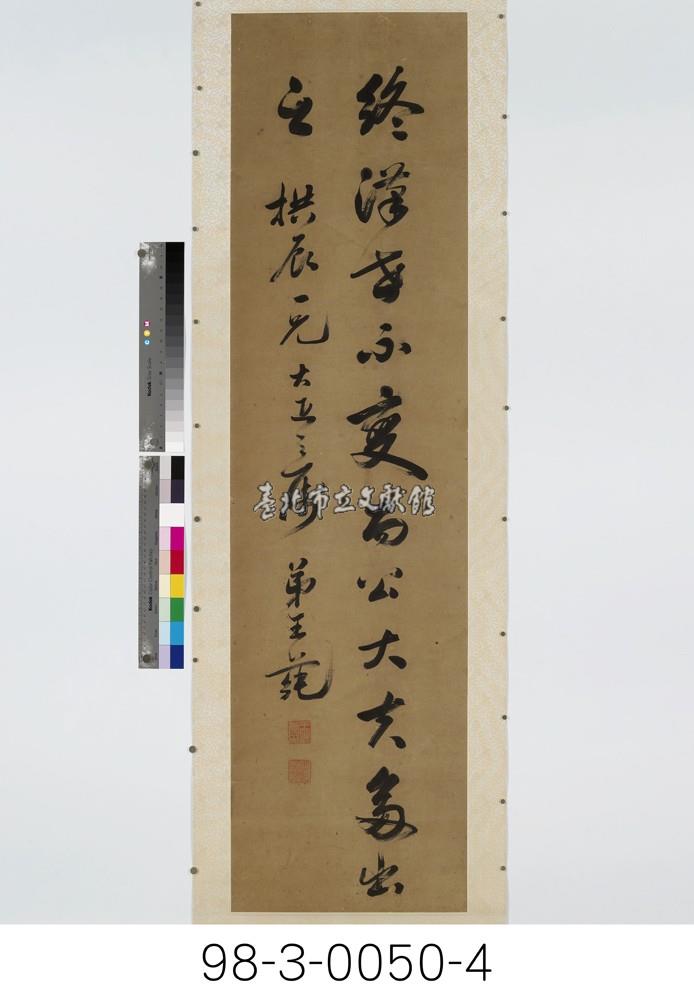 終漢世不變公大夫多出
拱辰一兄大正之 弟王
臺北市立文獻館
98-3-0050-4